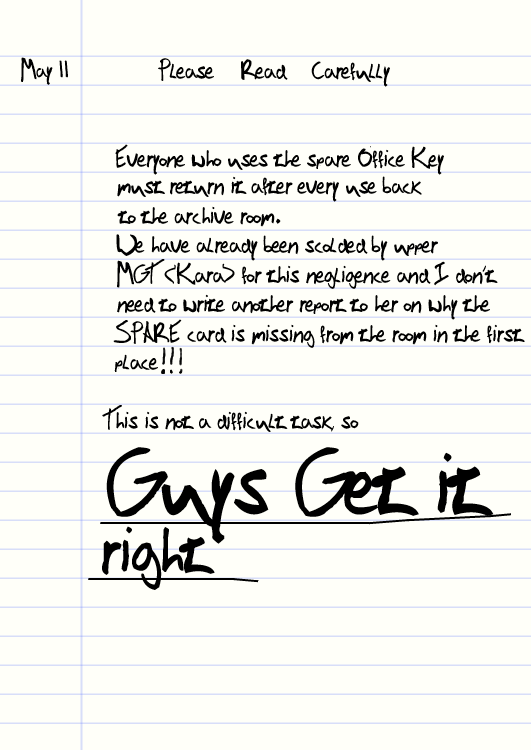 May 11 Please Read Carefully
Everyone who uses the spare Office Key
must return it after every use back
to the archive room.
We have already been scolded by upper
MGT <Kara> for this negligence and I don't
need to write another report to her on why the
SPARE card is missing from the room in the first
place!!!
This is not a difficult task, so
Guys Get it
right